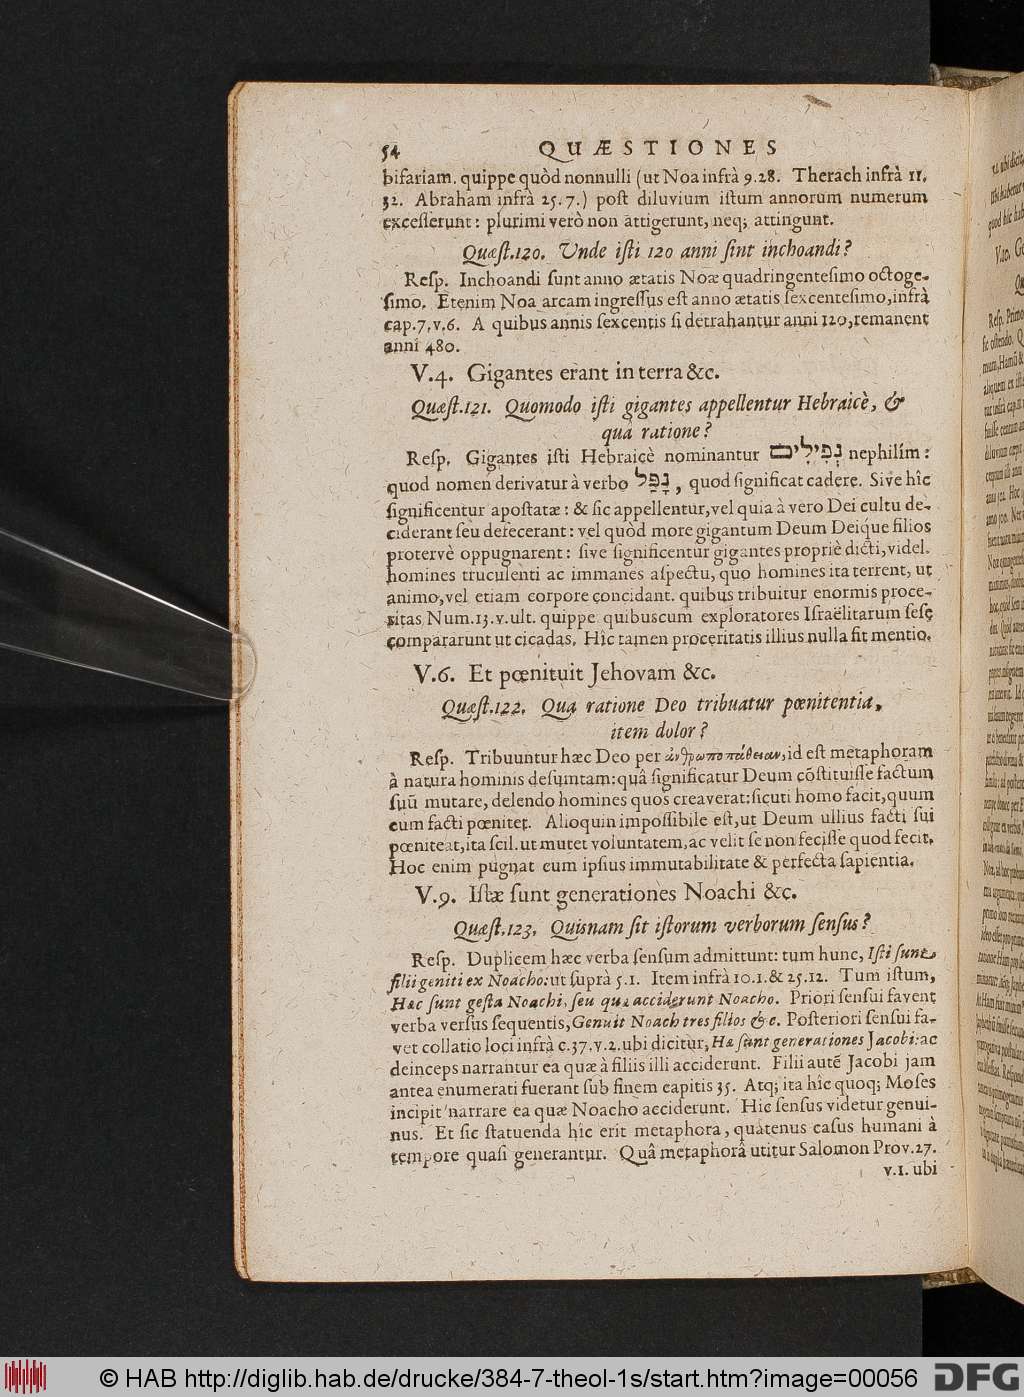 54 QUÆSTIONES
bifariam. quippe quòd nonnulli (ut Noa infrà 9.28. Therach infrà 11.
32. Abraham infrà 25.7.) poſt diluvium iſtum annorum numerum
exceſſerunt: plurimi verò non attigerunt, neq; attingunt.
Quæſt.120. Unde iſti 120 anni ſint inchoandi?
Reſp. Inchoandi ſunt anno ætatis Noæ quadringenteſimo octoge-
ſimo. Etenim Noa arcam ingreſſus eſt anno ætatis ſexcenteſimo, infrà
cap.7.v.6. A quibus annis ſexcentis ſi detrahantur anni 120, remanent
anni 480.
V.4. Gigantes erant in terra &c.
Quæſt.121. Quomodo iſti gigantes appellentur Hebraicè, &
qua ratione?
Reſp. Gigantes iſti Hebraicè nominantur נְפִילִים nephilím:
quod nomen derivatur à verbo נָפַל, quod ſignificat cadere. Sive hîc
ſignificentur apoſtatæ: & ſic appellentur, vel quia à vero Dei cultu de-
ciderant ſeu defecerant: vel quòd more gigantum Deum Deique filios
protervè oppugnarent: ſive ſignificentur gigantes propriè dicti, videl.
homines truculenti ac immanes aſpectu, quo homines ita terrent, ut
animo, vel etiam corpore concidant. quibus tribuitur enormis proce-
ritas Num.13.v.ult. quippe quibuscum exploratores Iſraëlitarum ſeſe
compararunt ut cicadas. Hîc tamen proceritatis illius nulla fit mentio.
V.6. Et pœnituit Jehovam &c.
Quæſt.122. Qua ratione Deo tribuatur pœnitentia,
item dolor?
Reſp. Tribuuntur hæc Deo per ἀνθρωποπάθειαν, id eſt metaphoram
à natura hominis deſumtam: quâ ſignificatur Deum cõſtituiſſe factum
ſuũ mutare, delendo homines quos creaverat: ſicuti homo facit, quum
eum facti pœnitet. Alioquin impoſſibile eſt, ut Deum ullius facti ſui
pœniteat, ita ſcil. ut mutet voluntatem, ac velit ſe non feciſſe quod fecit.
Hoc enim pugnat cum ipſius immutabilitate & perfecta ſapientia.
V.9. Iſtæ ſunt generationes Noachi &c.
Quæſt.123. Quisnam ſit iſtorum verborum ſenſus?
Reſp. Duplicem hæc verba ſenſum admittunt: tum hunc, Iſti ſunt
filii geniti ex Noacho: ut ſuprà 5.1. Item infrà 10.1. & 25.12. Tum iſtum,
Hæc ſunt geſta Noachi, ſeu quæ acciderunt Noacho. Priori ſenſui favent
verba verſus ſequentis, Genuit Noach tres filios &c. Poſteriori ſenſui fa-
vet collatio loci infrà c.37.v.2. ubi dicitur, Hæ ſunt generationes Jacobi: ac
deinceps narrantur ea quæ à filiis illi acciderunt. Filii autẽ Jacobi jam
antea enumerati fuerant ſub finem capitis 35. Atq; ita hîc quoq; Moſes
incipit narrare ea quæ Noacho acciderunt. Hic ſenſus videtur genui-
nus. Et ſic ſtatuenda hîc erit metaphora, quatenus caſus humani à
tempore quaſi generantur. Quâ metaphorâ utitur Salomon Prov.27.
v.1. ubi
© HAB http://diglib.hab.de/drucke/384-7-theol-1s/start.htm?image=00056
DFG